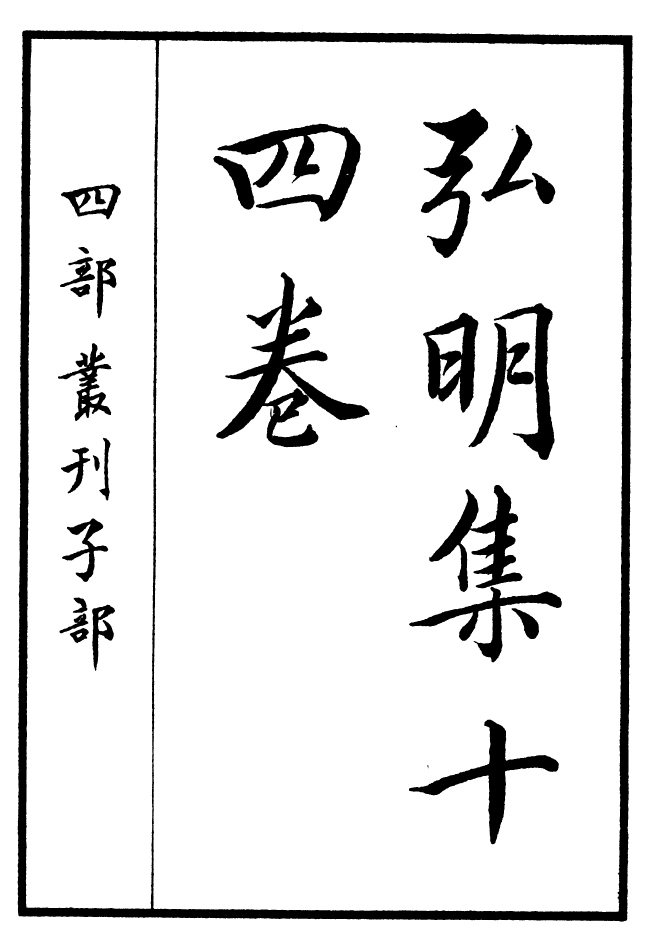 弘明集十
四卷
四部叢刊子部